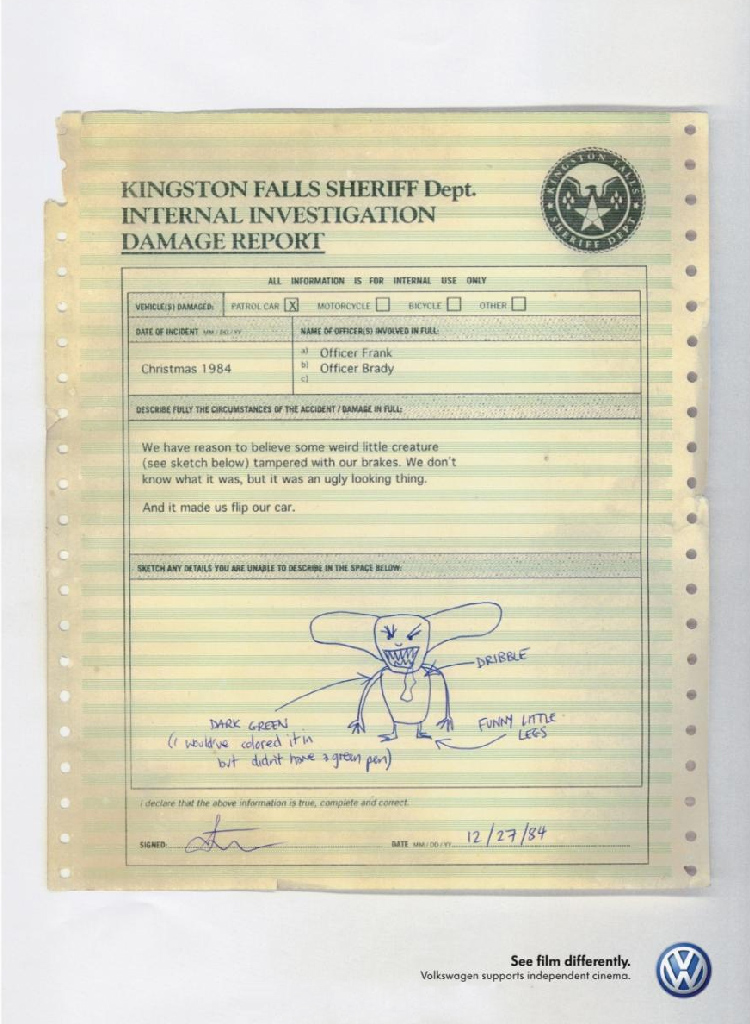 KINGSTON FALLS SHERIFF Dept.
INTERNAL INVESTIGATION
DAMAGE REPORT
KINGSTON FALLS
SHERIFF DEPT
ALL INFORMATION IS FOR INTERNAL USE ONLY
VEHICLE(S) DAMAGED: PATROL CAR X MOTORCYCLE BICYCLE OTHER
DATE OF INCIDENT MM/DD/YY NAME OF OFFICER(S) INVOLVED IN FULL:
a) Officer Frank
Christmas 1984 b) Officer Brady
c)
DESCRIBE FULLY THE CIRCUMSTANCES OF THE ACCIDENT / DAMAGE IN FULL:
We have reason to believe some weird little creature
(see sketch below) tampered with our brakes. We don't
know what it was, but it was an ugly looking thing.
And it made us flip our car.
SKETCH ANY DETAILS YOU ARE UNABLE TO DESCRIBE IN THE SPACE BELOW:
DRIBBLE
DARK GREEN
(i would've colored it in
but didn't have a green pen)
FUNNY LITTLE
LEGS
I declare that the above information is true, complete and correct.
SIGNED: DATE MM/DD/YY 12/27/84
See film differently.
Volkswagen supports independent cinema.
VW